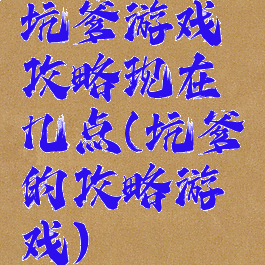 坑爹游戏
攻略现在
几点(坑爹
的攻略游
戏)